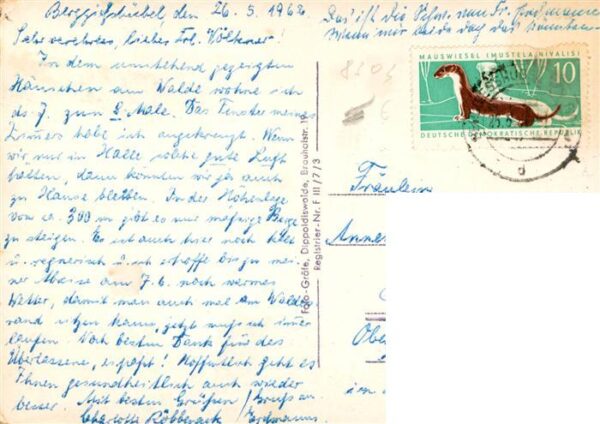 Berggießhübel, den 26. 5. 1962
Sehr verehrtes, liebes Frl. Völkner!
In dem umstehend gezeigten
Häuschen am Walde wohne ich
ds. J. zum 2. Male. Das Fenster meines
Zimmers habe ich angekreuzt. Wenn
wir nur in Halle solche gute Luft
hätten, dann könnten wir ja auch
zu Hause bleiben. In der Höhenlage
von ca. 300 m gibt es nur mäßige Berge
zu steigen. Es ist auch hier noch kalt
u. regnerisch u. ich erhoffe bis zu mei-
ner Abreise am 7. 6. noch warmes
Wetter, damit man auch mal am Waldes-
rand sitzen kann, jetzt muß ich immer
laufen. Noch besten Dank für das
Überlassene, erhofft! Hoffentlich geht es
Ihnen gesundheitlich auch wieder
besser. Mit besten Grüßen / Gruß an
Charlotte Röbberack / Erdmanns.
Das ist die Schw. von Fr.
Wenn wir
Foto-Gräfe, Dippoldiswalde, Brauhofstr. 19
Registrier-Nr. F III/7/3
8303
6
MAUSWIESEL (MUSTELA NIVALIS)
10
DEUTSCHE DEMOKRATISCHE REPUBLIK
Fräulein
Anne
Obe